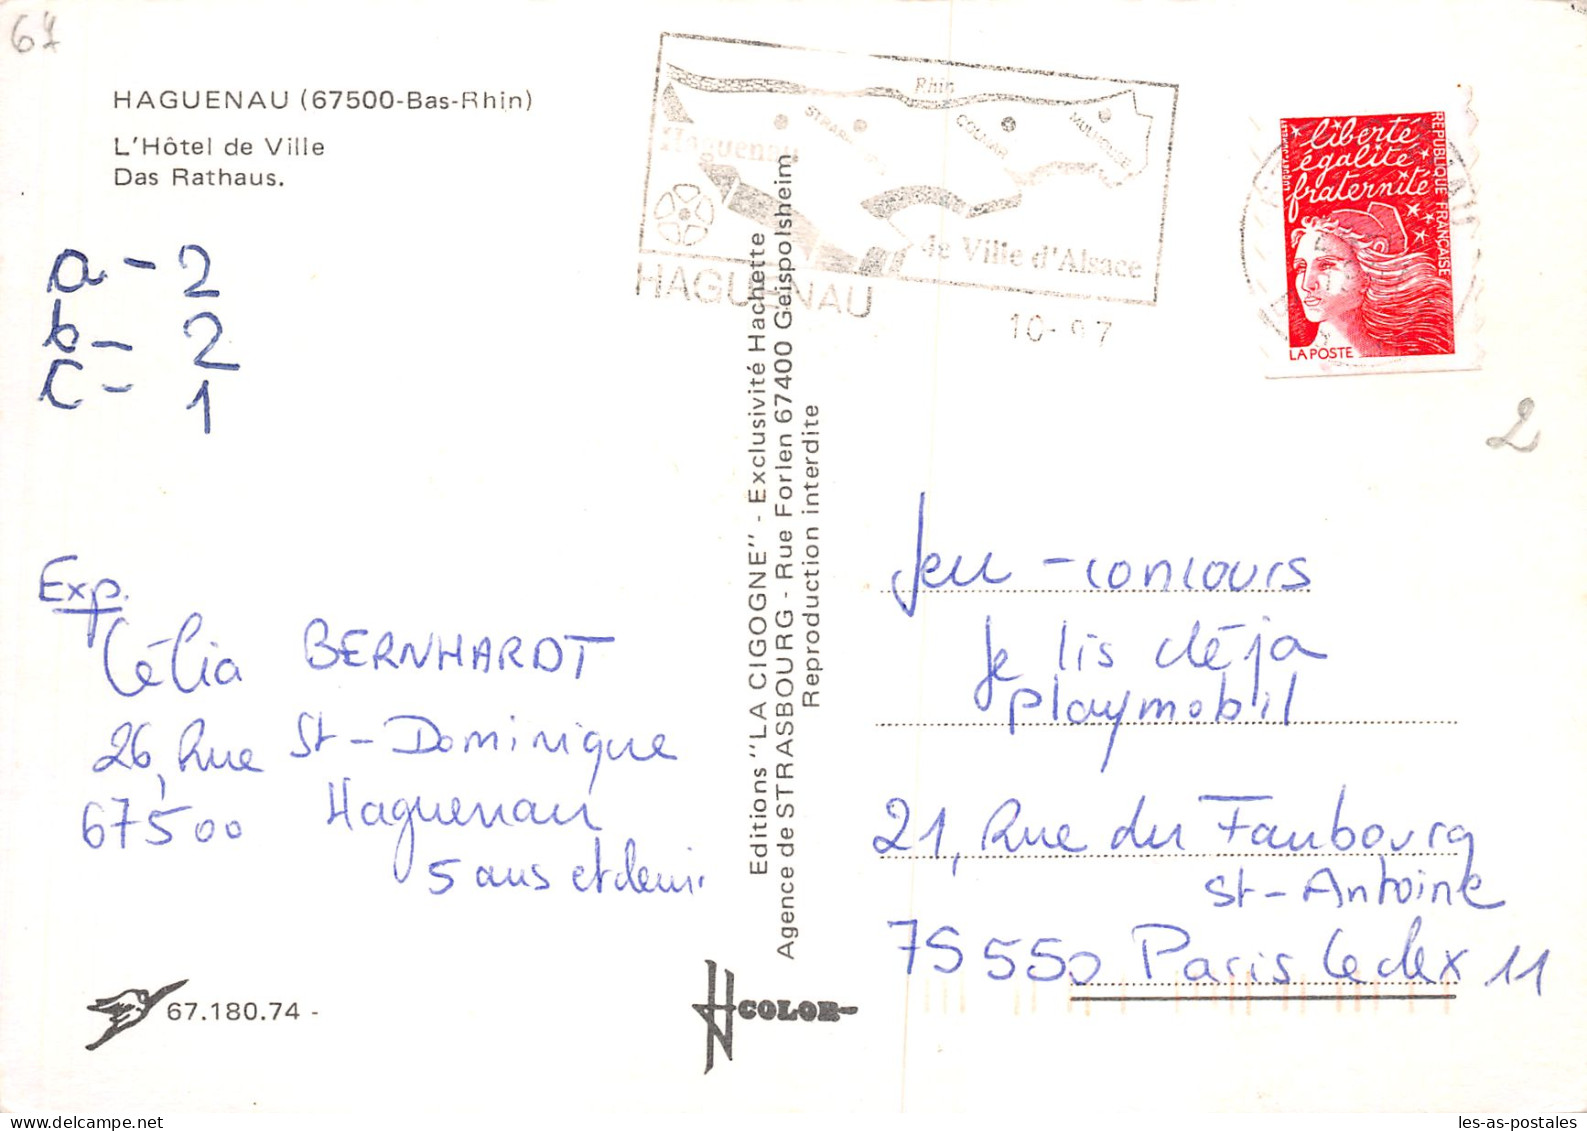 67
HAGUENAU (67500-Bas-Rhin)
L'Hôtel de Ville
Das Rathaus.
a - 2
b - 2
c - 1
Exp.
Célia BERNHARDT
26, Rue St-Dominique
67500 Haguenau
5 ans et demi
67.180.74 -
Editions "LA CIGOGNE" - Exclusivité Hachette
Agence de STRASBOURG - Rue Forlen 67400 Geispolsheim
Reproduction interdite
COLOR
Rhin
Haguenau
COLMAR
MULHOUSE
4e Ville d'Alsace
HAGUENAU
liberté
égalité
fraternité
REPUBLIQUE FRANÇAISE
LA POSTE
2
Jeu-concours
Je lis déja
playmobil
21, Rue du Faubourg
St-Antoine
75550 Paris Cedex 11
les-as-postales